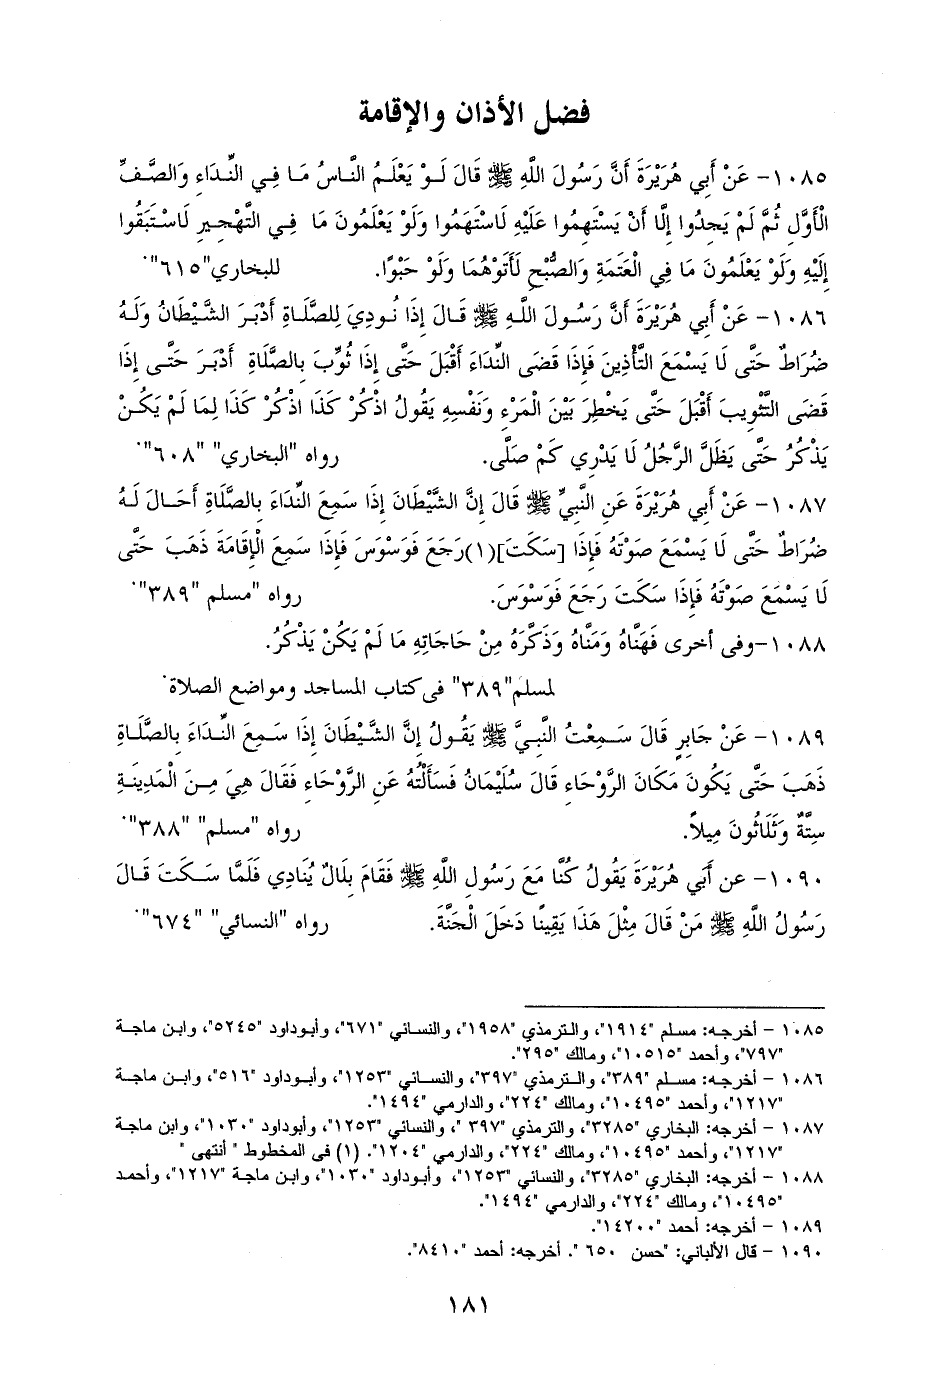 فضل الأذان والإقامة
١٠٨٥- عَنْ أَبِي هُرَيْرَةَ أَنَّ رَسُولَ اللَّهِ ﷺ قَالَ لَوْ يَعْلَمُ النَّاسُ مَا فِي النِّدَاءِ وَالصَّفِّ
الْأَوَّلِ ثُمَّ لَمْ يَجِدُوا إِلَّا أَنْ يَسْتَهِمُوا عَلَيْهِ لَاسْتَهَمُوا وَلَوْ يَعْلَمُونَ مَا فِي التَّهْجِيرِ لَاسْتَبَقُوا
إِلَيْهِ وَلَوْ يَعْلَمُونَ مَا فِي الْعَتَمَةِ وَالصُّبْحِ لَأَتَوْهُمَا وَلَوْ حَبْوًا. للبخاري"٦١٥".
١٠٨٦- عَنْ أَبِي هُرَيْرَةَ أَنَّ رَسُولَ اللَّهِ ﷺ قَالَ إِذَا نُودِيَ لِلصَّلَاةِ أَدْبَرَ الشَّيْطَانُ وَلَهُ
ضُرَاطٌ حَتَّى لَا يَسْمَعَ التَّأْذِينَ فَإِذَا قَضَى النِّدَاءَ أَقْبَلَ حَتَّى إِذَا ثُوِّبَ بِالصَّلَاةِ أَدْبَرَ حَتَّى إِذَا
قَضَى التَّثْوِيبَ أَقْبَلَ حَتَّى يَخْطِرَ بَيْنَ الْمَرْءِ وَنَفْسِهِ يَقُولُ اذْكُرْ كَذَا اذْكُرْ كَذَا لِمَا لَمْ يَكُنْ
يَذْكُرُ حَتَّى يَظَلَّ الرَّجُلُ لَا يَدْرِي كَمْ صَلَّى. رواه "البخاري" "٦٠٨".
١٠٨٧- عَنْ أَبِي هُرَيْرَةَ عَنِ النَّبِيِّ ﷺ قَالَ إِنَّ الشَّيْطَانَ إِذَا سَمِعَ النِّدَاءَ بِالصَّلَاةِ أَحَالَ لَهُ
ضُرَاطٌ حَتَّى لَا يَسْمَعَ صَوْتَهُ فَإِذَا [سَكَتَ](١)رَجَعَ فَوَسْوَسَ فَإِذَا سَمِعَ الْإِقَامَةَ ذَهَبَ حَتَّى
لَا يَسْمَعَ صَوْتَهُ فَإِذَا سَكَتَ رَجَعَ فَوَسْوَسَ. رواه "مسلم "٣٨٩".
١٠٨٨-وفى أخرى فَهَنَّاهُ وَمَنَّاهُ وَذَكَّرَهُ مِنْ حَاجَاتِهِ مَا لَمْ يَكُنْ يَذْكُرُ.
لمسلم"٣٨٩" فى كتاب المساجد ومواضع الصلاة.
١٠٨٩- عَنْ جَابِرٍ قَالَ سَمِعْتُ النَّبِيَّ ﷺ يَقُولُ إِنَّ الشَّيْطَانَ إِذَا سَمِعَ النِّدَاءَ بِالصَّلَاةِ
ذَهَبَ حَتَّى يَكُونَ مَكَانَ الرَّوْحَاءِ قَالَ سُلَيْمَانُ فَسَأَلْتُهُ عَنِ الرَّوْحَاءِ فَقَالَ هِيَ مِنَ الْمَدِينَةِ
سِتَّةٌ وَثَلَاثُونَ مِيلاً. رواه "مسلم" "٣٨٨".
١٠٩٠- عن أَبِي هُرَيْرَةَ يَقُولُ كُنَّا مَعَ رَسُولِ اللَّهِ ﷺ فَقَامَ بِلَالٌ يُنَادِي فَلَمَّا سَكَتَ قَالَ
رَسُولُ اللَّهِ ﷺ مَنْ قَالَ مِثْلَ هَذَا يَقِينًا دَخَلَ الْجَنَّةَ. رواه "النسائي" "٦٧٤".
١٠٨٥ - أخرجه: مسلم "١٩١٤"، والترمذي "١٩٥٨"، والنسائي "٦٧١"، وأبوداود "٥٢٤٥"، وابن ماجة
"٧٩٧"، وأحمد "١٠٥١٥"، ومالك "٢٩٥".
١٠٨٦ - أخرجه: مسلم "٣٨٩"، والترمذي "٣٩٧"، والنسائي "١٢٥٣"، وأبوداود "٥١٦"، وابن ماجة
"١٢١٧"، وأحمد "١٠٤٩٥"، ومالك "٢٢٤"، والدارمي "١٤٩٤".
١٠٨٧ - أخرجه: البخاري "٣٢٨٥"، والترمذي "٣٩٧ "، والنسائي "١٢٥٣"، وأبوداود "١٠٣٠"، وابن ماجة
"١٢١٧"، وأحمد "١٠٤٩٥"، ومالك "٢٢٤"، والدارمي "١٢٠٤". (١) فى المخطوط " أنتهى "
١٠٨٨ - أخرجه: البخاري "٣٢٨٥"، والنسائي "١٢٥٣"، وأبوداود "١٠٣٠"، وابن ماجة "١٢١٧"، وأحمد
"١٠٤٩٥"، ومالك "٢٢٤"، والدارمي "١٤٩٤".
١٠٨٩ - أخرجه: أحمد "١٤٢٠٠".
١٠٩٠ - قال الألباني: "حسن ٦٥٠ ". أخرجه: أحمد "٨٤١٠".
١٨١